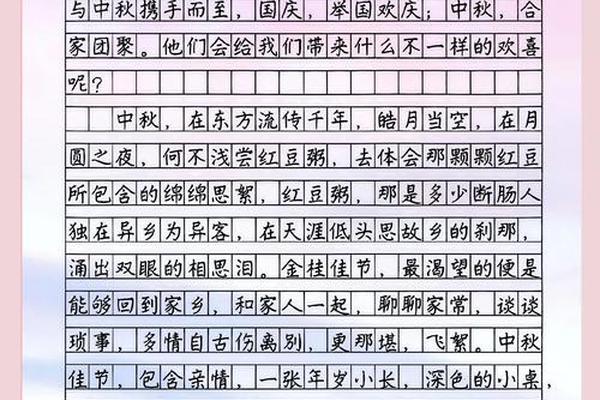 与中秋携手而至，国庆，举国欢庆；中秋，合
家团聚。他们会给我们带来什么不一样的欢喜
呢？
中秋，在东方流传千年，皓月当空，在月
圆之夜，何不浅尝红豆粥，去体会那颗颗红豆
所包含的绵绵思絮，红豆粥，那是多少断肠人
独在异乡为异客，在天涯低头思故乡的刹那，
涌出双眼的相思泪。金桂佳节，最渴望的便是
能够回到家乡，和家人一起，聊聊家常，谈谈
琐事，多情自古伤离别，更那堪，飞絮。中秋
佳节，包含亲情，一张年岁小长，深色的小桌，